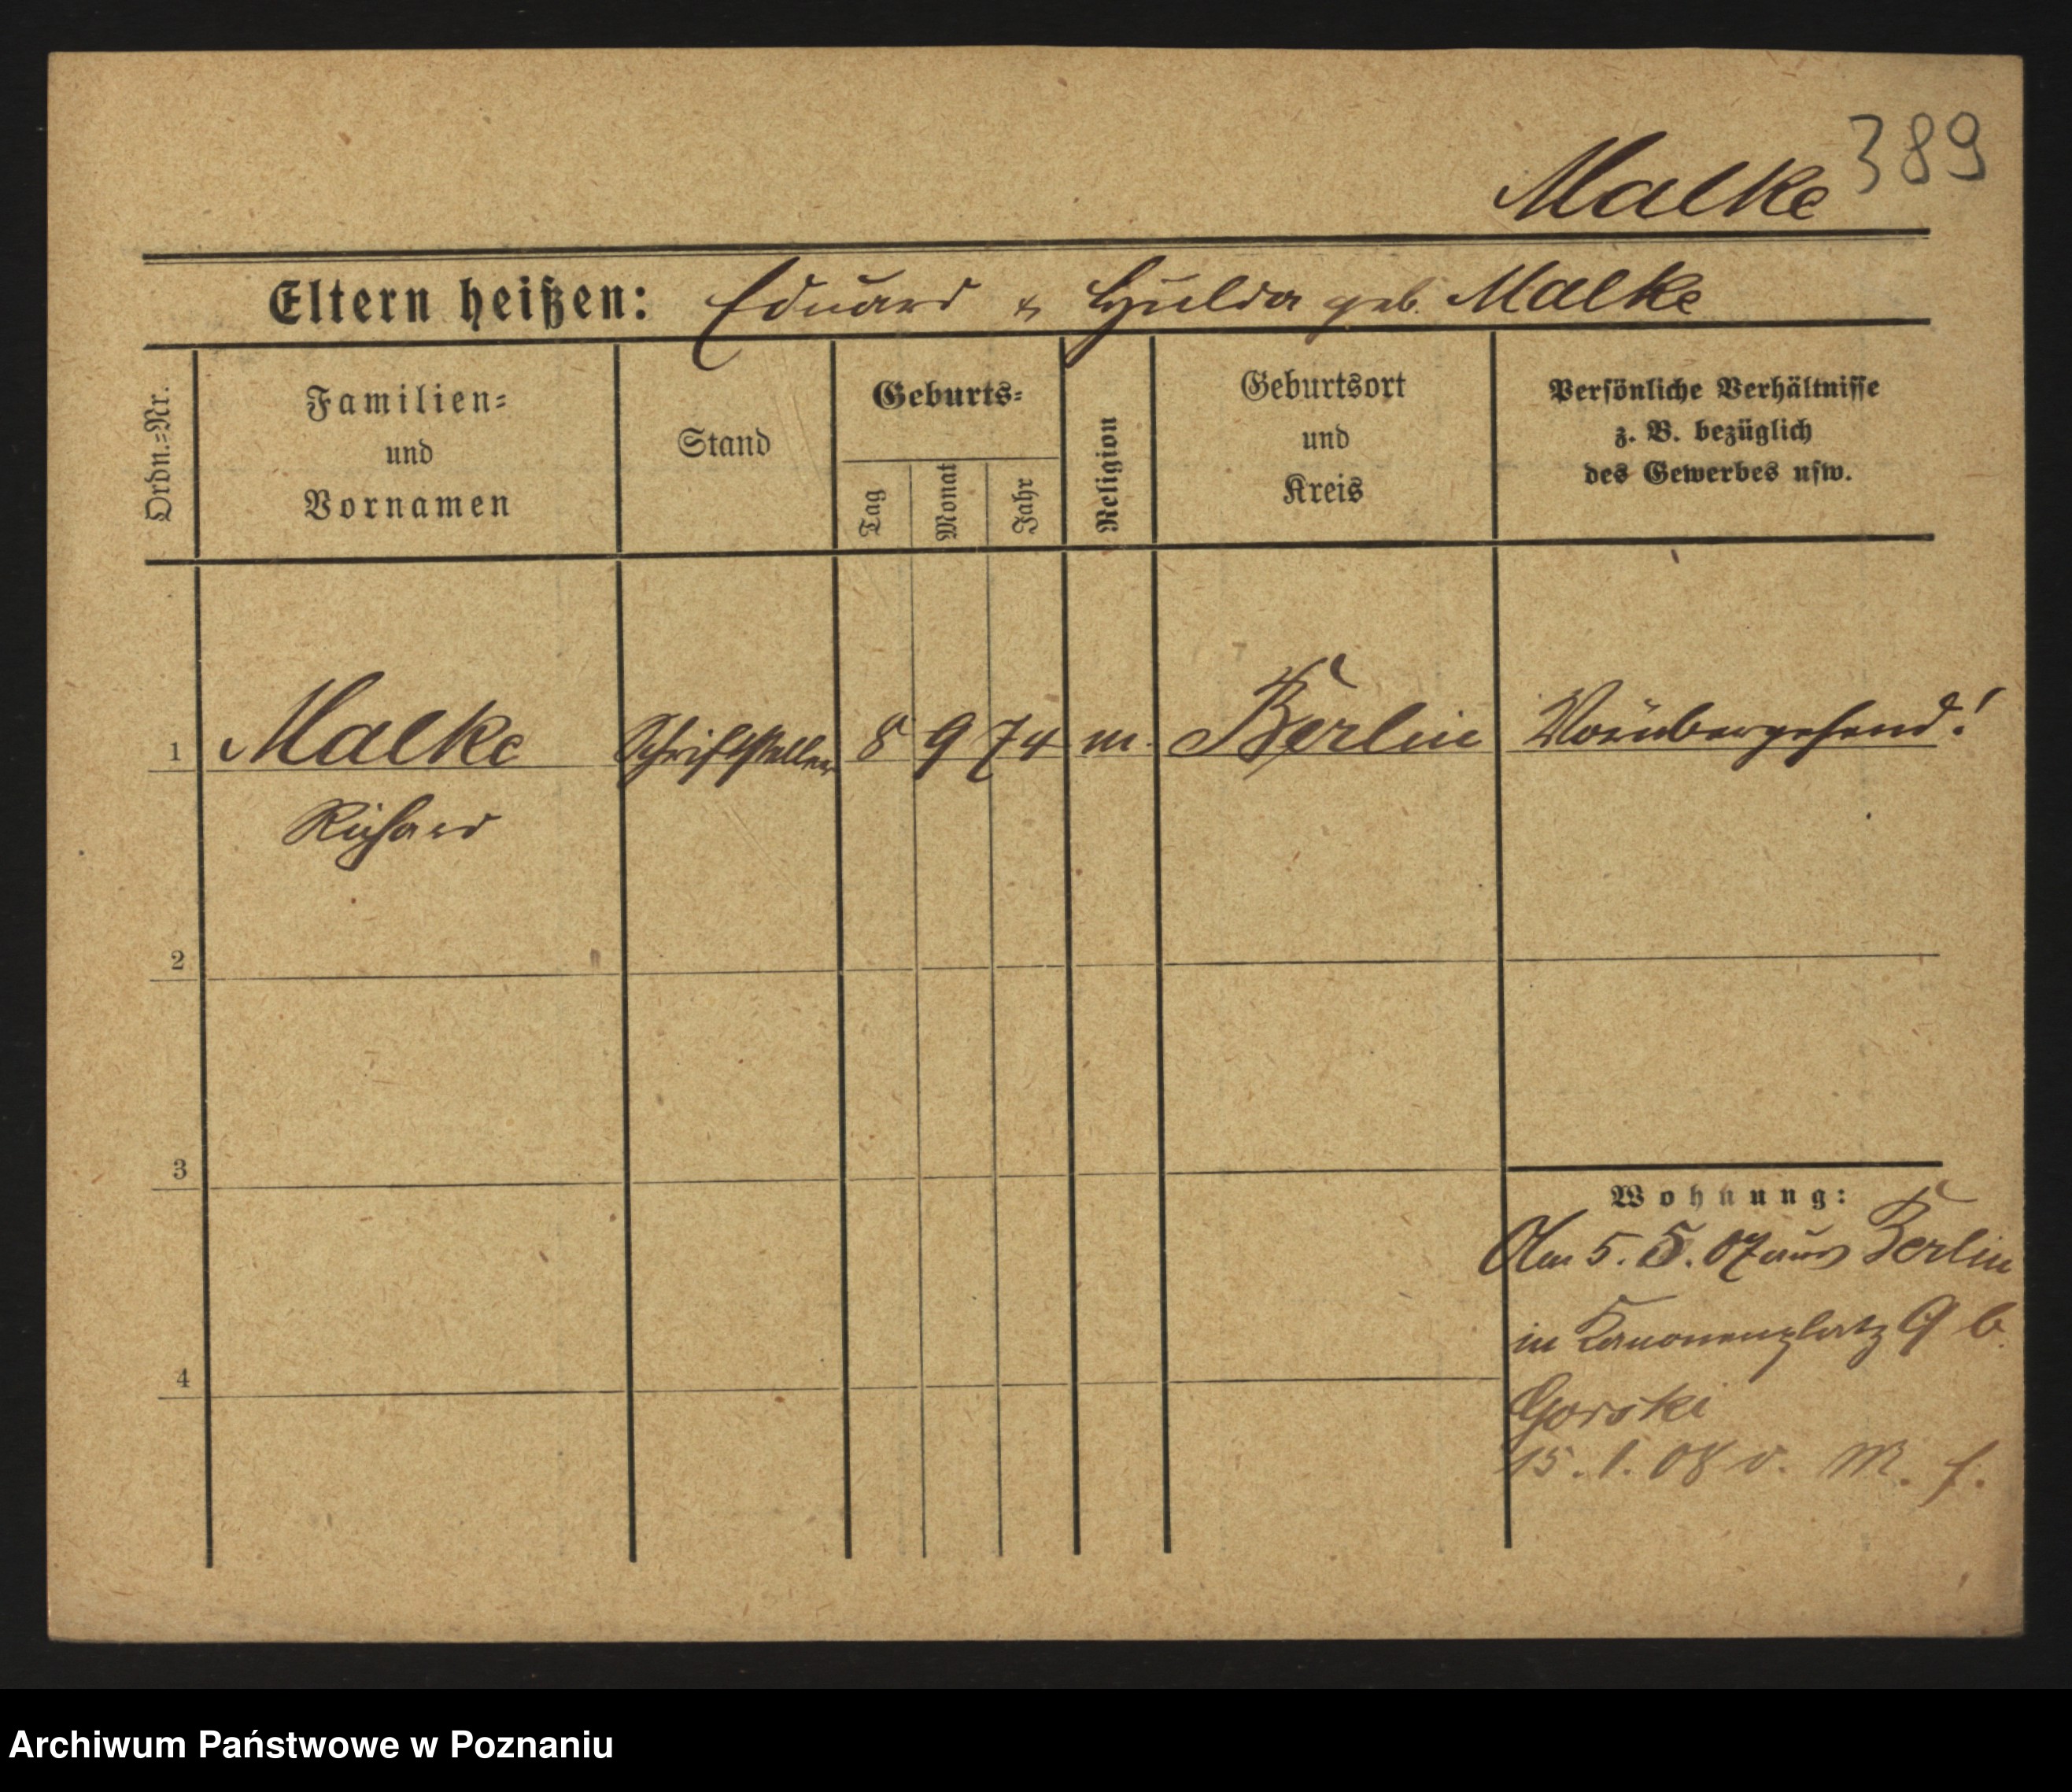 389
Malke
Eltern heißen: Eduard & Hulda geb. Malke
Ordn.=Nr.
Familien=
und
Vornamen
Stand
Geburts=
Tag
Monat
Jahr
Religion
Geburtsort
und
Kreis
Persönliche Verhältnisse
z. B. bezüglich
des Gewerbes usw.
1 Malke Schriftsteller 8 9 74 m. Berlin Vorübergehend!
Richard
2
3
4
Wohnung:
Am 5. 5. 07 aus Berlin
in Kanonenplatz 9 b.
Gorski
15. 1. 08 v. M. f.
Archiwum Państwowe w Poznaniu